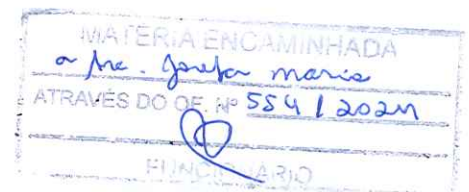 MATÉRIA ENCAMINHADA
a Sra. Josefa Maria
ATRAVÉS DO OF. Nº 554 / 2024
FUNCIONÁRIO